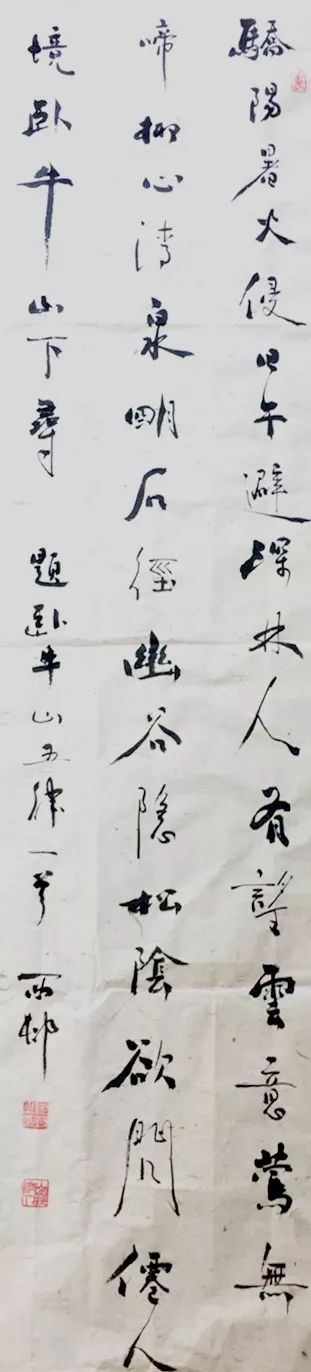 驕陽暑火侵日午避深林人有望雲意鶯無
啼柳心清泉明石徑幽谷隱松陰欲問僊人
境臥牛山下尋 題臥牛山五律一首 西邨